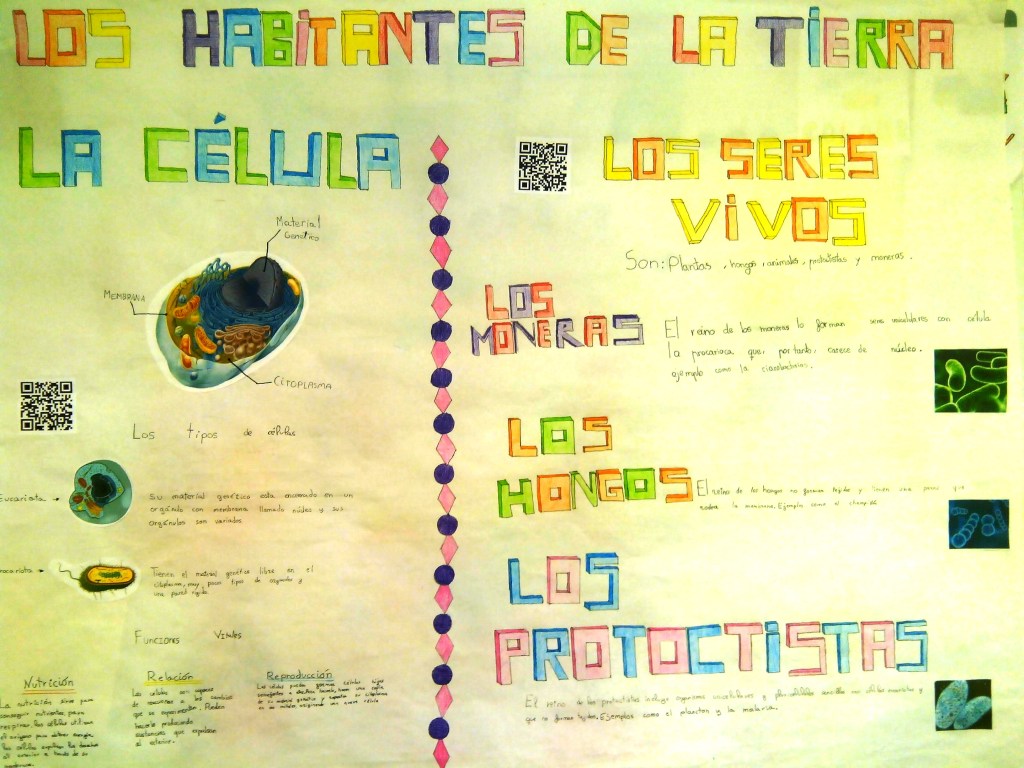 LOS HABITANTES DE LA TIERRA
LA CÉLULA
Material
Genético
MEMBRANA
CITOPLASMA
Los tipos de células
Eucariata
su material genético esta encerrado en un
orgánulo con membrana llamado núcleo y sus
orgánulos son variados
Tienen el material genético libre en el
citoplasma, muy pocos tipos de
una pared rígida
Funciones Vitales
Nutrición
La nutrición sirve para
conseguir nutrientes, para
respirar, las células utilizan
el oxígeno para obtener energía,
las células expulsan los desechos
al exterior a través de su
membrana.
Relación
Las células son capaces
de reaccionar a los cambios
que se experimentan. Pueden
hacerlo produciendo
sustancias que expulsan
al exterior.
Reproducción
LOS SERES
VIVOS
Son: Plantas, hongos, animales, protistas y moneras.
LOS
MONERAS
El reino de los moneras lo forman seres unicelulares con célula
la procariaca que, por tanto, carece de núcleo.
ejemplo como la cianobacterias.
LOS
HONGOS
El reino de los hongos no forman tejido y tienen una pared que
rodea la membrana. Ejemplo como el champiñón
LOS
PROTOCTISTAS
El reino de los protoctistas incluye organismos unicelulares y pluricelulares
que no forman tejidos. Ejemplos como el plancton y la malaria.